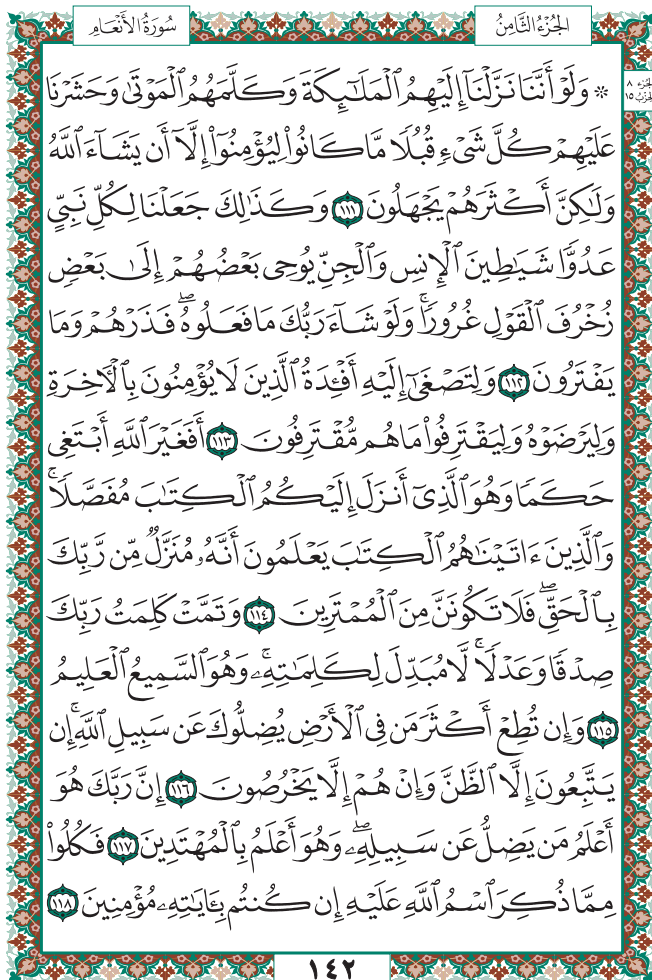 الجُزْءُ الثَّامِنُ
سُورَةُ الأَنْعَامِ
الجزء ٨
الحزب ١٥
۞ وَلَوۡ أَنَّنَا نَزَّلۡنَآ إِلَيۡهِمُ ٱلۡمَلَٰٓئِكَةَ وَكَلَّمَهُمُ ٱلۡمَوۡتَىٰ وَحَشَرۡنَا
عَلَيۡهِمۡ كُلَّ شَيۡءٖ قُبُلٗا مَّا كَانُواْ لِيُؤۡمِنُوٓاْ إِلَّآ أَن يَشَآءَ ٱللَّهُ
وَلَٰكِنَّ أَكۡثَرَهُمۡ يَجۡهَلُونَ ١١١ وَكَذَٰلِكَ جَعَلۡنَا لِكُلِّ نَبِيٍّ
عَدُوّٗا شَيَٰطِينَ ٱلۡإِنسِ وَٱلۡجِنِّ يُوحِي بَعۡضُهُمۡ إِلَىٰ بَعۡضٖ
زُخۡرُفَ ٱلۡقَوۡلِ غُرُورٗاۚ وَلَوۡ شَآءَ رَبُّكَ مَا فَعَلُوهُۖ فَذَرۡهُمۡ وَمَا
يَفۡتَرُونَ ١١٢ وَلِتَصۡغَىٰٓ إِلَيۡهِ أَفۡـِٔدَةُ ٱلَّذِينَ لَا يُؤۡمِنُونَ بِٱلۡأٓخِرَةِ
وَلِيَرۡضَوۡهُ وَلِيَقۡتَرِفُواْ مَا هُم مُّقۡتَرِفُونَ ١١٣ أَفَغَيۡرَ ٱللَّهِ أَبۡتَغِي
حَكَمٗا وَهُوَ ٱلَّذِيٓ أَنزَلَ إِلَيۡكُمُ ٱلۡكِتَٰبَ مُفَصَّلٗاۚ
وَٱلَّذِينَ ءَاتَيۡنَٰهُمُ ٱلۡكِتَٰبَ يَعۡلَمُونَ أَنَّهُۥ مُنَزَّلٞ مِّن رَّبِّكَ
بِٱلۡحَقِّۖ فَلَا تَكُونَنَّ مِنَ ٱلۡمُمۡتَرِينَ ١١٤ وَتَمَّتۡ كَلِمَتُ رَبِّكَ
صِدۡقٗا وَعَدۡلٗاۚ لَّا مُبَدِّلَ لِكَلِمَٰتِهِۦۚ وَهُوَ ٱلسَّمِيعُ ٱلۡعَلِيمُ
١١٥ وَإِن تُطِعۡ أَكۡثَرَ مَن فِي ٱلۡأَرۡضِ يُضِلُّوكَ عَن سَبِيلِ ٱللَّهِۚ إِن
يَتَّبِعُونَ إِلَّا ٱلظَّنَّ وَإِنۡ هُمۡ إِلَّا يَخۡرُصُونَ ١١٦ إِنَّ رَبَّكَ هُوَ
أَعۡلَمُ مَن يَضِلُّ عَن سَبِيلِهِۦۖ وَهُوَ أَعۡلَمُ بِٱلۡمُهۡتَدِينَ ١١٧ فَكُلُواْ
مِمَّا ذُكِرَ ٱسۡمُ ٱللَّهِ عَلَيۡهِ إِن كُنتُم بِـَٔايَٰتِهِۦ مُؤۡمِنِينَ ١١٨
١٤٢